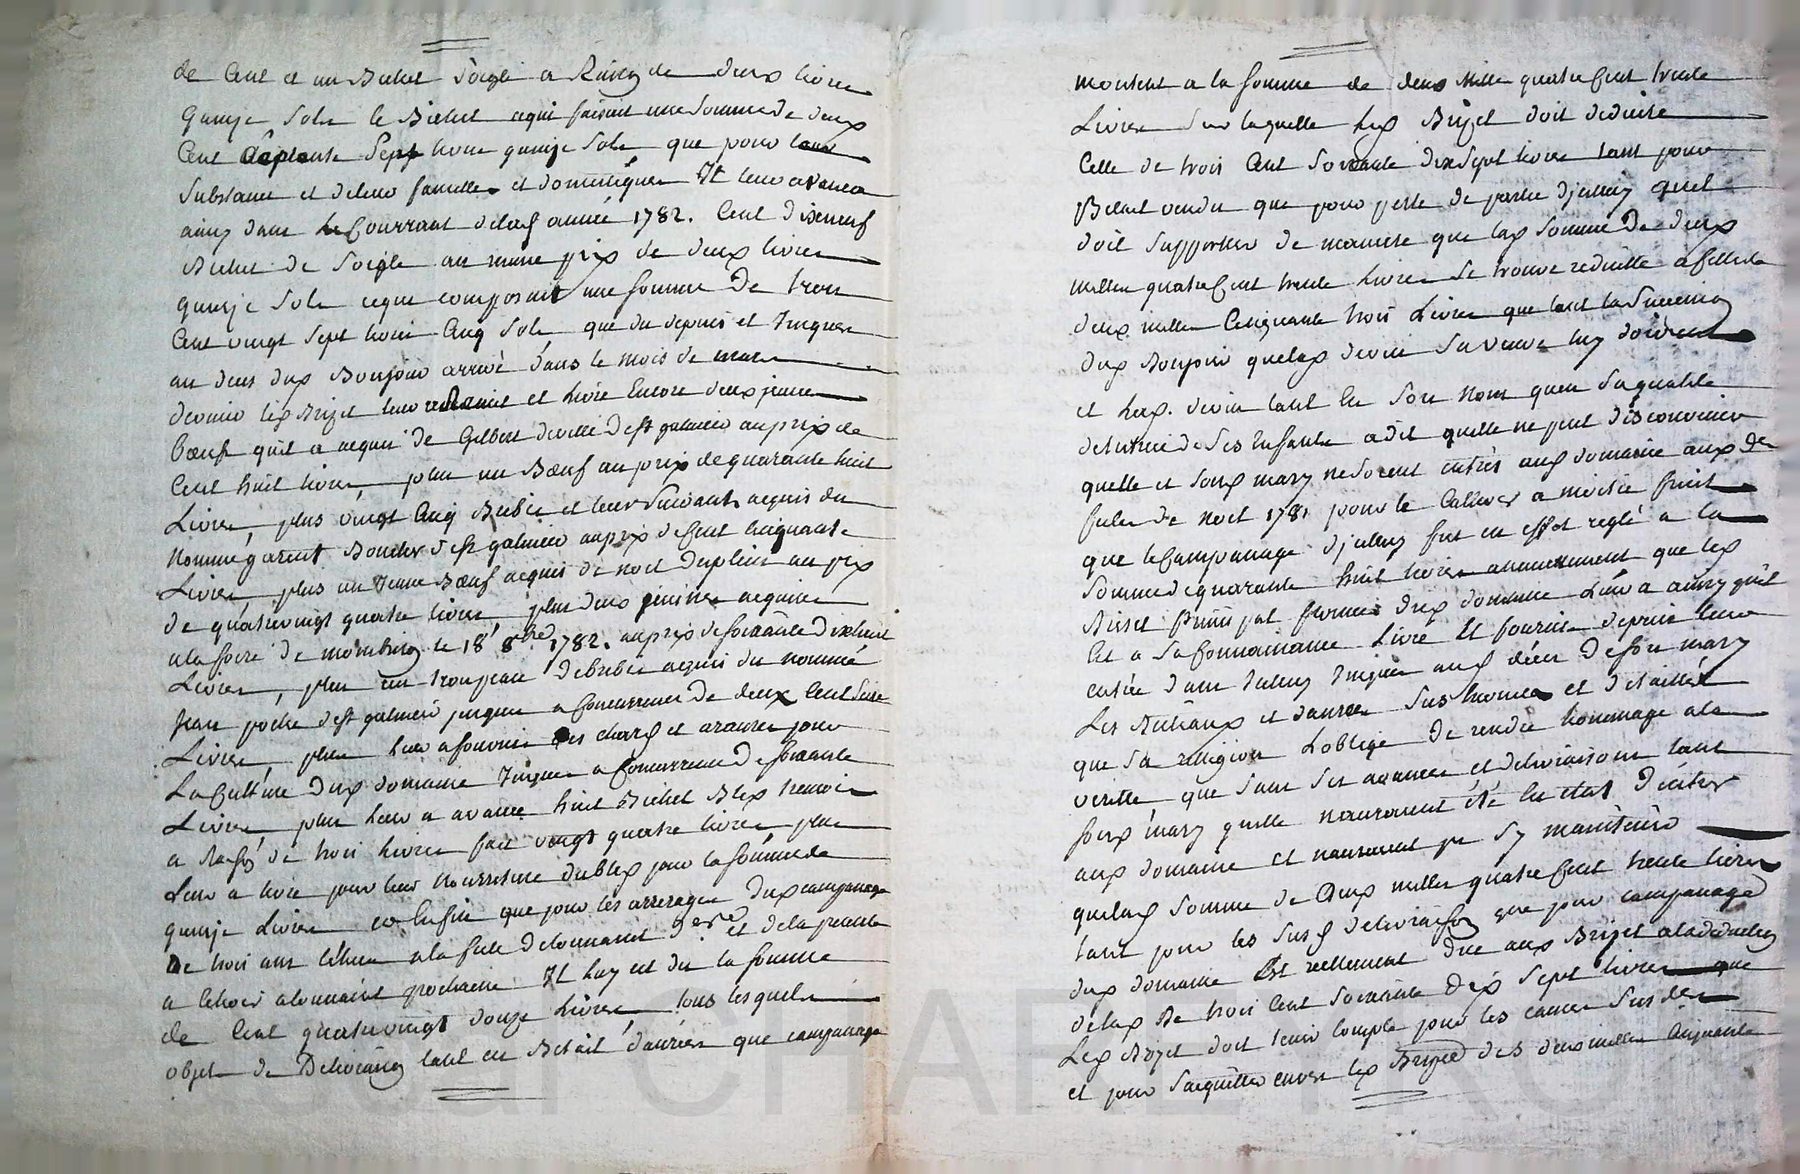 de Cent et un Bichet Soigle a Raison de deux livres
quinze Sols le Bichet ce qui faisoit une Somme de deux
Cent Septente Sept livres quinze Sols que pour leur
Substance et de leur famille et domestiques Il leur avança
ainsy dans le Courrant de lad année 1782. Cent dixneuf
Bichet de Soigle au même prix de deux livres
quinze Sols ce que composoit une somme de trois
Cent vingt Sept livres Cinq Sols, que du depuis et Jusques
au deces dud Bonjour arrivé dans le mois de mars
dernier led Brizet leur et livré Encore deux jeunes
bœufs qu'il a acquis de Gilbert de St galmier au prix de
Cent huit livres, plus un Bœuf au prix de quarante huit
Livres, plus vingt Cinq Brebis et leur Suivants acquis du
nommé Boucher de St galmier au prix de Cent Cinquante
Livres plus un Jeune Bœuf acquis de noel Duplein au prix
de quatrevingt quatre livres, plus deux genisses acquises
a la foire de le 18 8bre 1782. au prix de soixante dixhuit
Livres, plus un trouppeau de brebis acquis du nommé
Jean poche de St galmier jusques a Concurrence de deux Cent Seize
Livres, plus leur a fourni des chars et araires pour
La Culture dud domaine Jusques a Concurrence de soixante
Livres, plus leur a avancé huit Bichet Bled tremois
a Raison de trois Livres fait vingt quatre livres plus
Leur a livré pour leur nourriture du bled pour la somme de
quinze Livres et Enfin que pour les arrerages dud campanage
De trois ans Echus a la fete de toussaint dere et de la presente
a Echoir a toussaint prochaine Il luy est du la somme
de Cent quatrevingt douze Livres, tous lesquels
objets de Delivraison tant en Betail, danrées que campanage
montent a la somme de deux mille quatre Cent trente
Livres Sur laquelle led Brizet doit deduire
Celle de trois Cent Soixante dix Sept livres tant pour
Betail vendu que pour perte de partie d'iceluy quil
doit Supporter de maniere que lad Somme De deux
milles quatre Cent trente Livres Se trouve reduitte a Celle de
deux milles Cinquante trois Livres que tant la Succession
dud Bonjour que lad devin Sa veuve luy doivent
et lad. devin tant En Son Nom quen Sa qualité
de tutrice de Ses Enfants a dit quelle ne peut disconvenir
quelle et Soud mary ne Soient entrés aud domaine aux de
fetes de Noel 1781 pour le Cultiver a moitié fruit
que le Campanage d'iceluy fut en effet reglé a la
Somme de quarante huit livres annuellement que led
Brizet principal fermier dud domaine Leur a ainsy qu'il
Est a Sa Connoissance Livré Et fourni depuis leur
entrée dans Iceluy Jusques aud déces de Son mary
Les Bestiaux et danrées Sus nommés et détaillés
que Sa religion Loblige de rendre hommage a la
verité, que Sans Ses avances et delivraisons tant
Soud mary quelle nauroient été En état d'entrer
aud domaine Et nauroient pu Sy maintenir
que lad Somme de Deux milles quatre Cent trente livres
tant pour les Susd delivraison que pour campanage
dud domaine Est reellement due aud Brizet a la deduction
de lad De trois Cent Soixante dix Sept livres que
Led Brizet doit tenir Compte pour les causes Susdites
et pour Sacquitter envers led Brizet des deux milles Cinquante